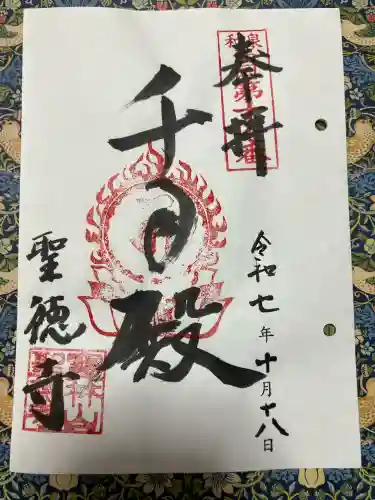 奉拝
千手殿
令和七年十月十八日
聖徳寺